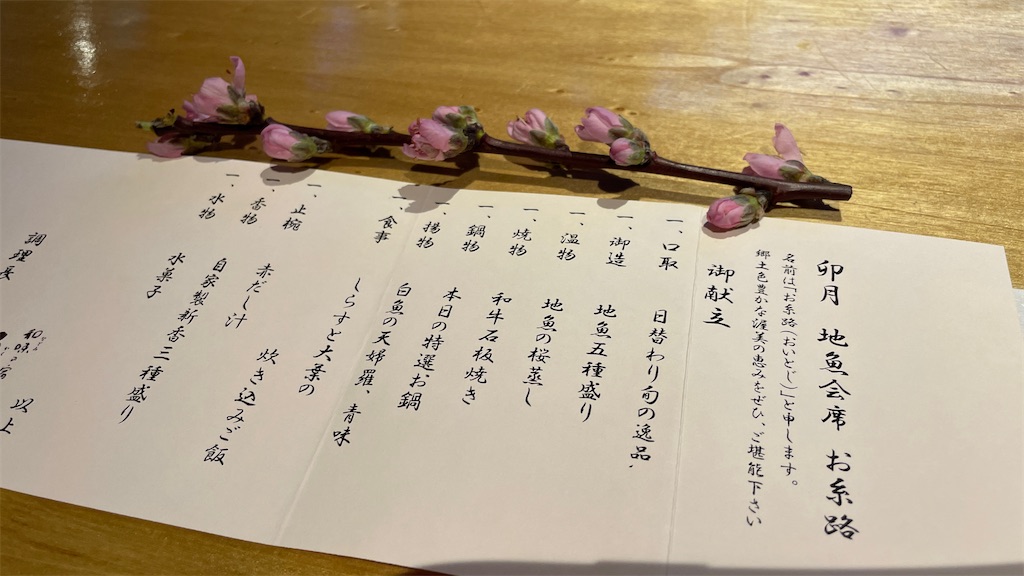 卯月 地魚会席 お糸路
名前は「お糸路（おいとじ）」と申します。
郷土色豊かな渥美の恵みをぜひ、ご堪能下さい
御献立
一、口取 日替わり旬の逸品
一、御造 地魚五種盛り
一、温物 地魚の桜蒸し
一、焼物 和牛石板焼き
一、鍋物 本日の特選お鍋
一、揚物 白魚の天婦羅、青味
一、食事 しらすと大葉の
炊き込みご飯
一、止椀 赤だし汁
一、香物 自家製新香三種盛り
一、水物 水菓子
以上
調理長